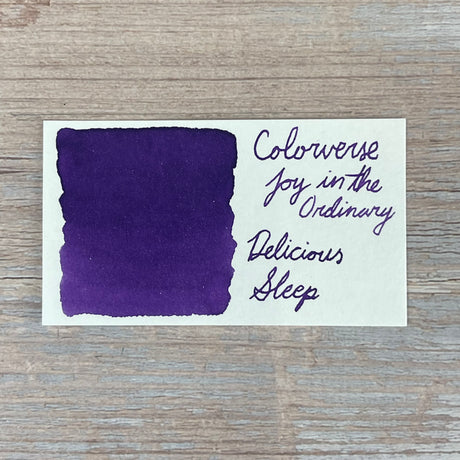 Colorverse
Joy in the
Ordinary
Delicious
Sleep